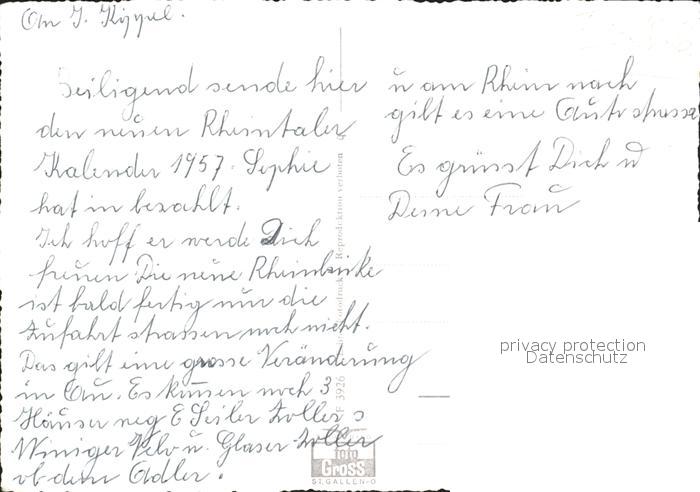 An J. Kippel.
Beiligend sende hier
den neuen Rheintaler
Kalender 1957. Sophie
hat in bezahlt.
Ich hoff er werde Dich
freuen Die neue Rheinbrüke
ist bald fertig nur die
Zufahrt strassen noch nicht.
Das gilt eine grosse Veränderung
in Au. Es kümen noch 3
Häuser neg E Seiler Zollers
Winiger Velo u. Glaser Zoller
ob dem Adler.
u am Rhein nach
gilt es eine Autostrasse
Es grüsst Dich u
Deine Frau
Reproduktion verboten
3926
foto
GROSS
ST. GALLEN-O
privacy protection
Datenschutz